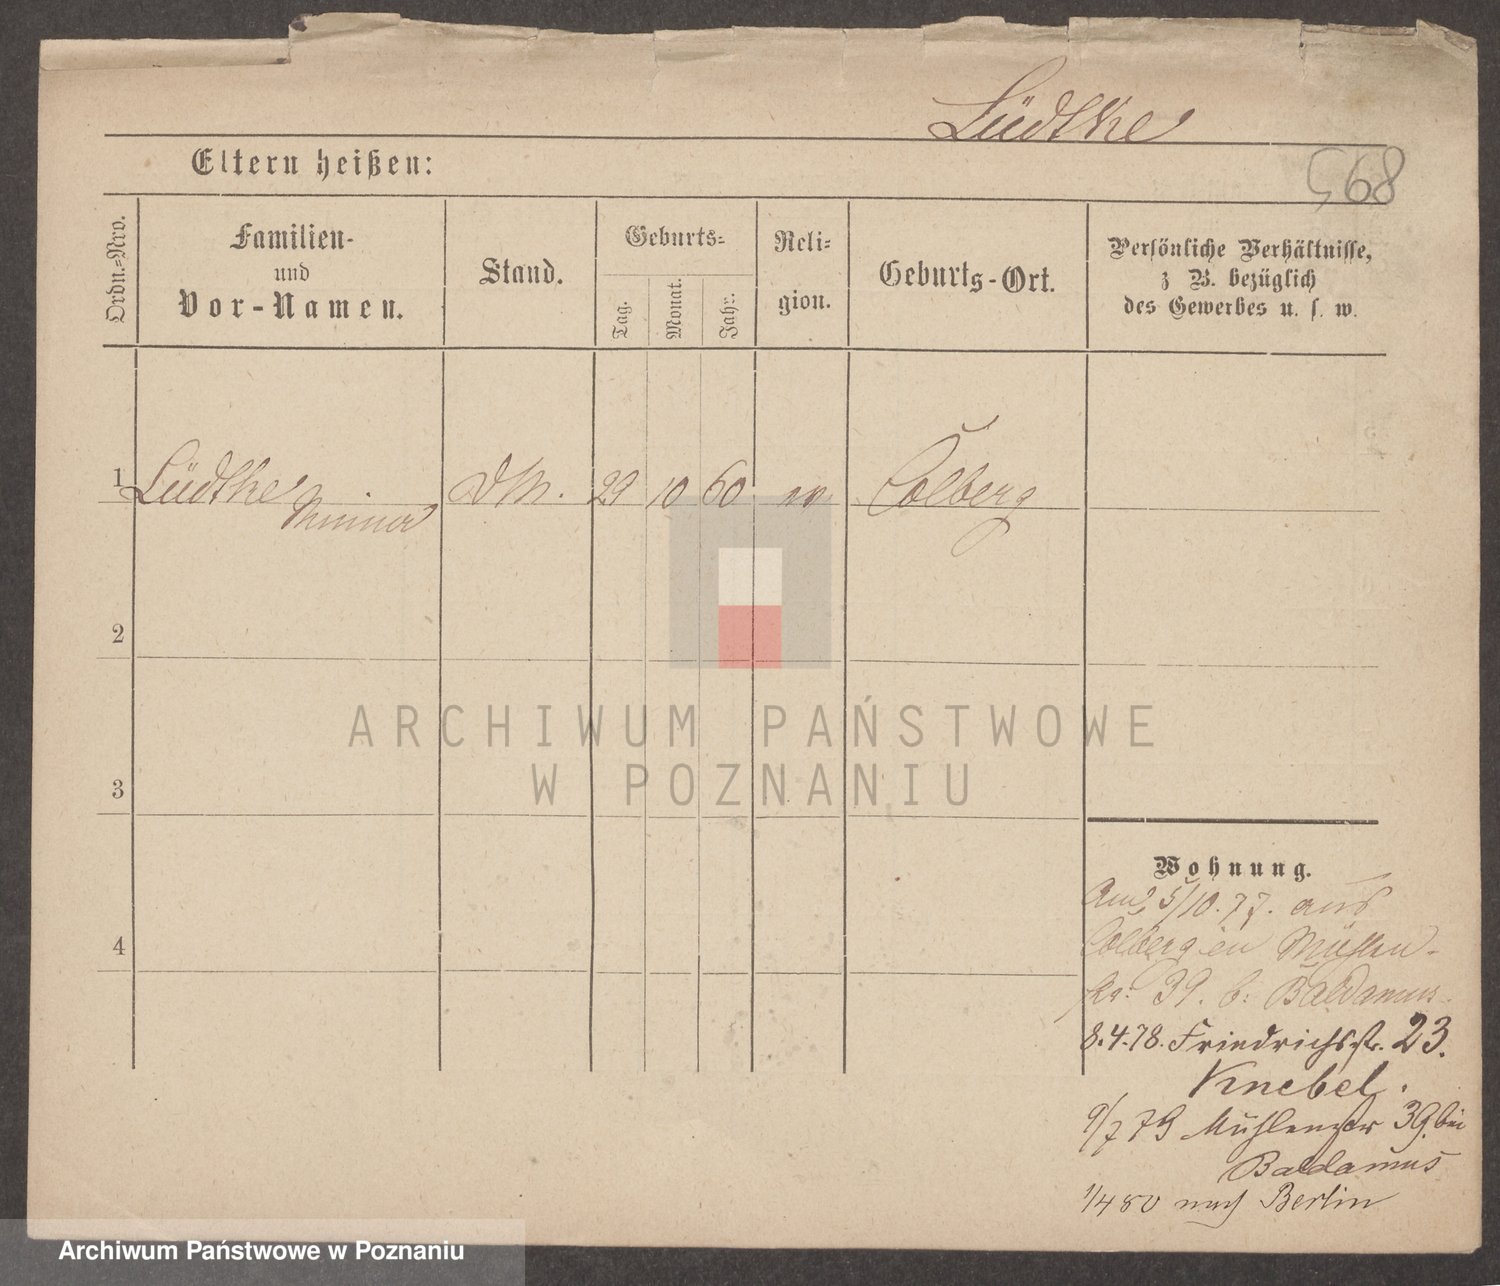 Lüdtke
Eltern heißen:
568
Ordn.=Nro.
Familien-
und
Vor-Namen.
Stand.
Geburts=
Tag.
Monat.
Jahr.
Reli=
gion.
Geburts-Ort.
Persönliche Verhältnisse,
z B. bezüglich
des Gewerbes u. s. w.
1 Lüdtke Minna DM. 29 10 60 ev Colberg
2
3
4
ARCHIWUM PAŃSTWOWE
W POZNANIU
Wohnung.
5/10. 77. aus
Colberg in Mühlen-
str: 39. b: Baldamus.
8.4.78. Friedrichsstr. 23.
Knebel.
9/7 79 Mühlenstr 39. bei
Baldamus
1/4 80 nach Berlin
Archiwum Państwowe w Poznaniu